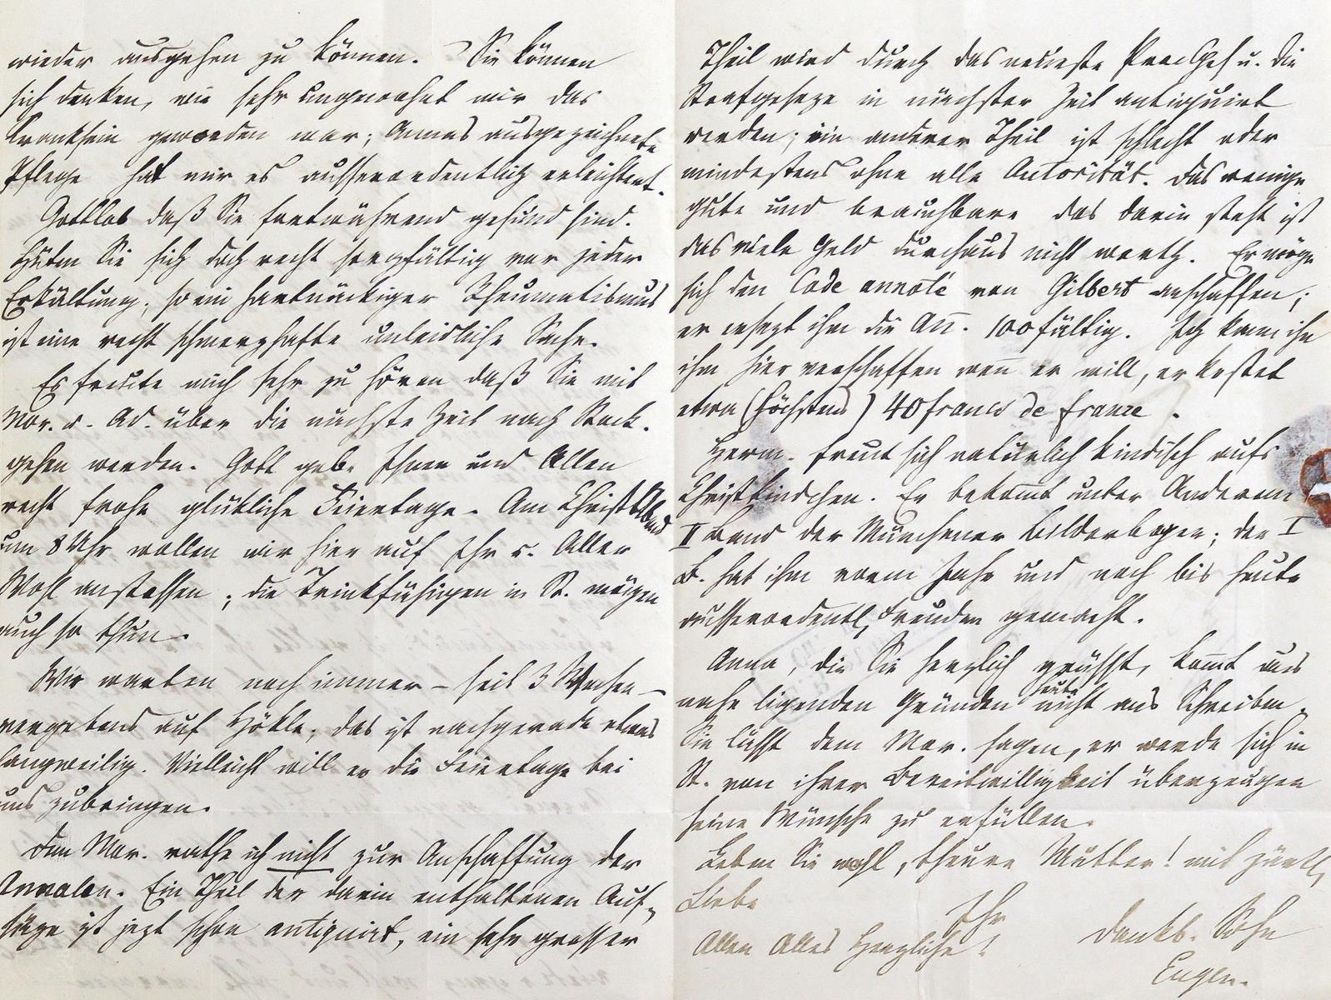 wieder ausgehen zu können. – Sie können
sich denken, wie sehr ungewohnt mir das
Kranksein geworden war; Annas ausgezeichnete
Pflege hat mir es ausserordentlich erleichtert.
Gottlob daß Sie fortwährend gesund sind.
Hüten Sie sich doch recht sorgfältig vor jeder
Erkältung, so ein hartnäckiger Rheumatismus
ist eine recht schmerzhafte unleidliche Sache.
Es freute mich sehr zu hören daß Sie mit
Mor. u. Ad. über die nächste Zeit nach Stock.
gehen werden. Gott gebe Ihnen und Allen
recht frohe glükliche Feiertage. Am Christabend
um 8 Uhr wollen wir hier auf Ihr u. Aller
Wohl anstossen; die Trinkfähigen in St. mögen
auch so thun.
Wir warten noch immer – seit 3 Wochen –
vergebens auf Hökle; das ist nachgerade etwas
langweilig. Vielleicht will er die Feiertage bei
uns zubringen.
Dem Mor. rathe ich nicht zur Anschaffung der
Annalen. Ein Theil der darin enthaltenen Auf-
säze ist jezt schon antiquirt, ein sehr grosser
Theil wird durch das neueste Ges u. die
Strafgeseze in nächster Zeit antiquirt
werden; ein anderer Theil ist schlecht oder
mindestens ohne alle Autorität. Das wenige
gute und brauchbare das darin steht ist
das viele Geld durchaus nicht werth. Er möge
sich den Code annoté von Gilbert anschaffen;
er ersezt ihm die An̄. 100fältig. Ich kann ihn
ihm hier verschaffen wen̄ er will, er kostet
etwa (höchstens) 40 francs de france.
Herm. freut sich natürlich kindisch aufs
Christkindchen. Er bekom̄t unter Anderem
II Band der Münchener Bilderbogen; der I
B. hat ihm vorm Jahr und noch bis heute
ausserordentl. Freuden gemacht.
Anna, die Sie herzlich grüsst, kom̄t aus
nahe ligenden Gründen heute nicht ans Schreiben.
Sie lässt dem Mor. sagen, er werde sich in
St. von ihrer Bereitwilligkeit überzeugen
seine Wünsche zu erfüllen.
Leben Sie wohl, theure Mutter! mit zärtl.
Liebe
Ihr
dankb. Sohn
Allen Alles Herzliche!
Eugen.